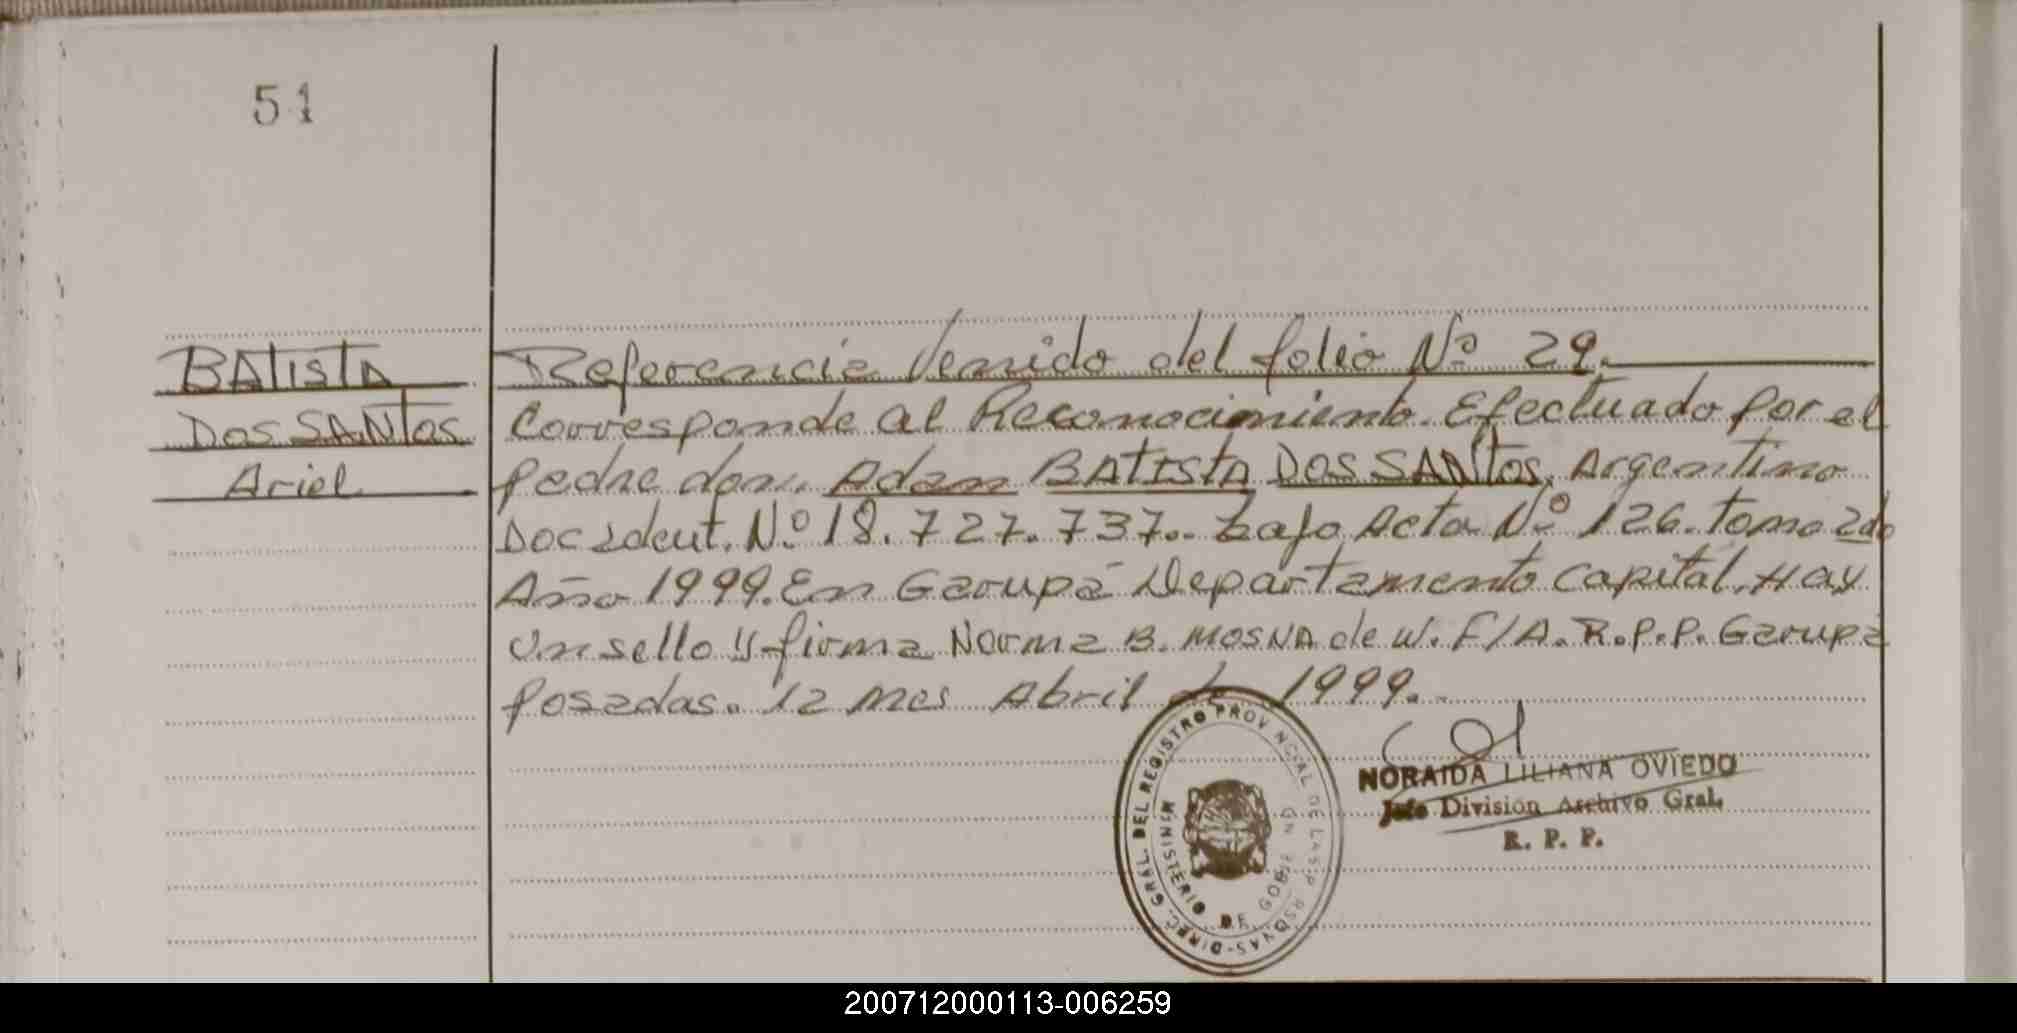 51
BATISTA
DOS SANTOS
Ariel
Referencia Venido del folio Nº 29.
Corresponde al Reconocimiento. Efectuado por el
padre don. Adan BATISTA DOS SANTOS, Argentino
Doc Ident. Nº 18.727.737.. bajo Acta Nº 126. Tomo 2do
Año 1999. En Garupá Departamento Capital. Hay
Un sello y firma Norma B. MOSNA de W. F/A. R.P.P. Garupá
Posadas. 12 Mes Abril de 1999.
DIREC. GRAL. DEL REGISTRO PROVINCIAL DE LAS PERSONAS
MINISTERIO DE GOBIERNO
NORAIDA LILIANA OVIEDO
Jefe División Archivo Gral.
R. P. P.
200712000113-006259